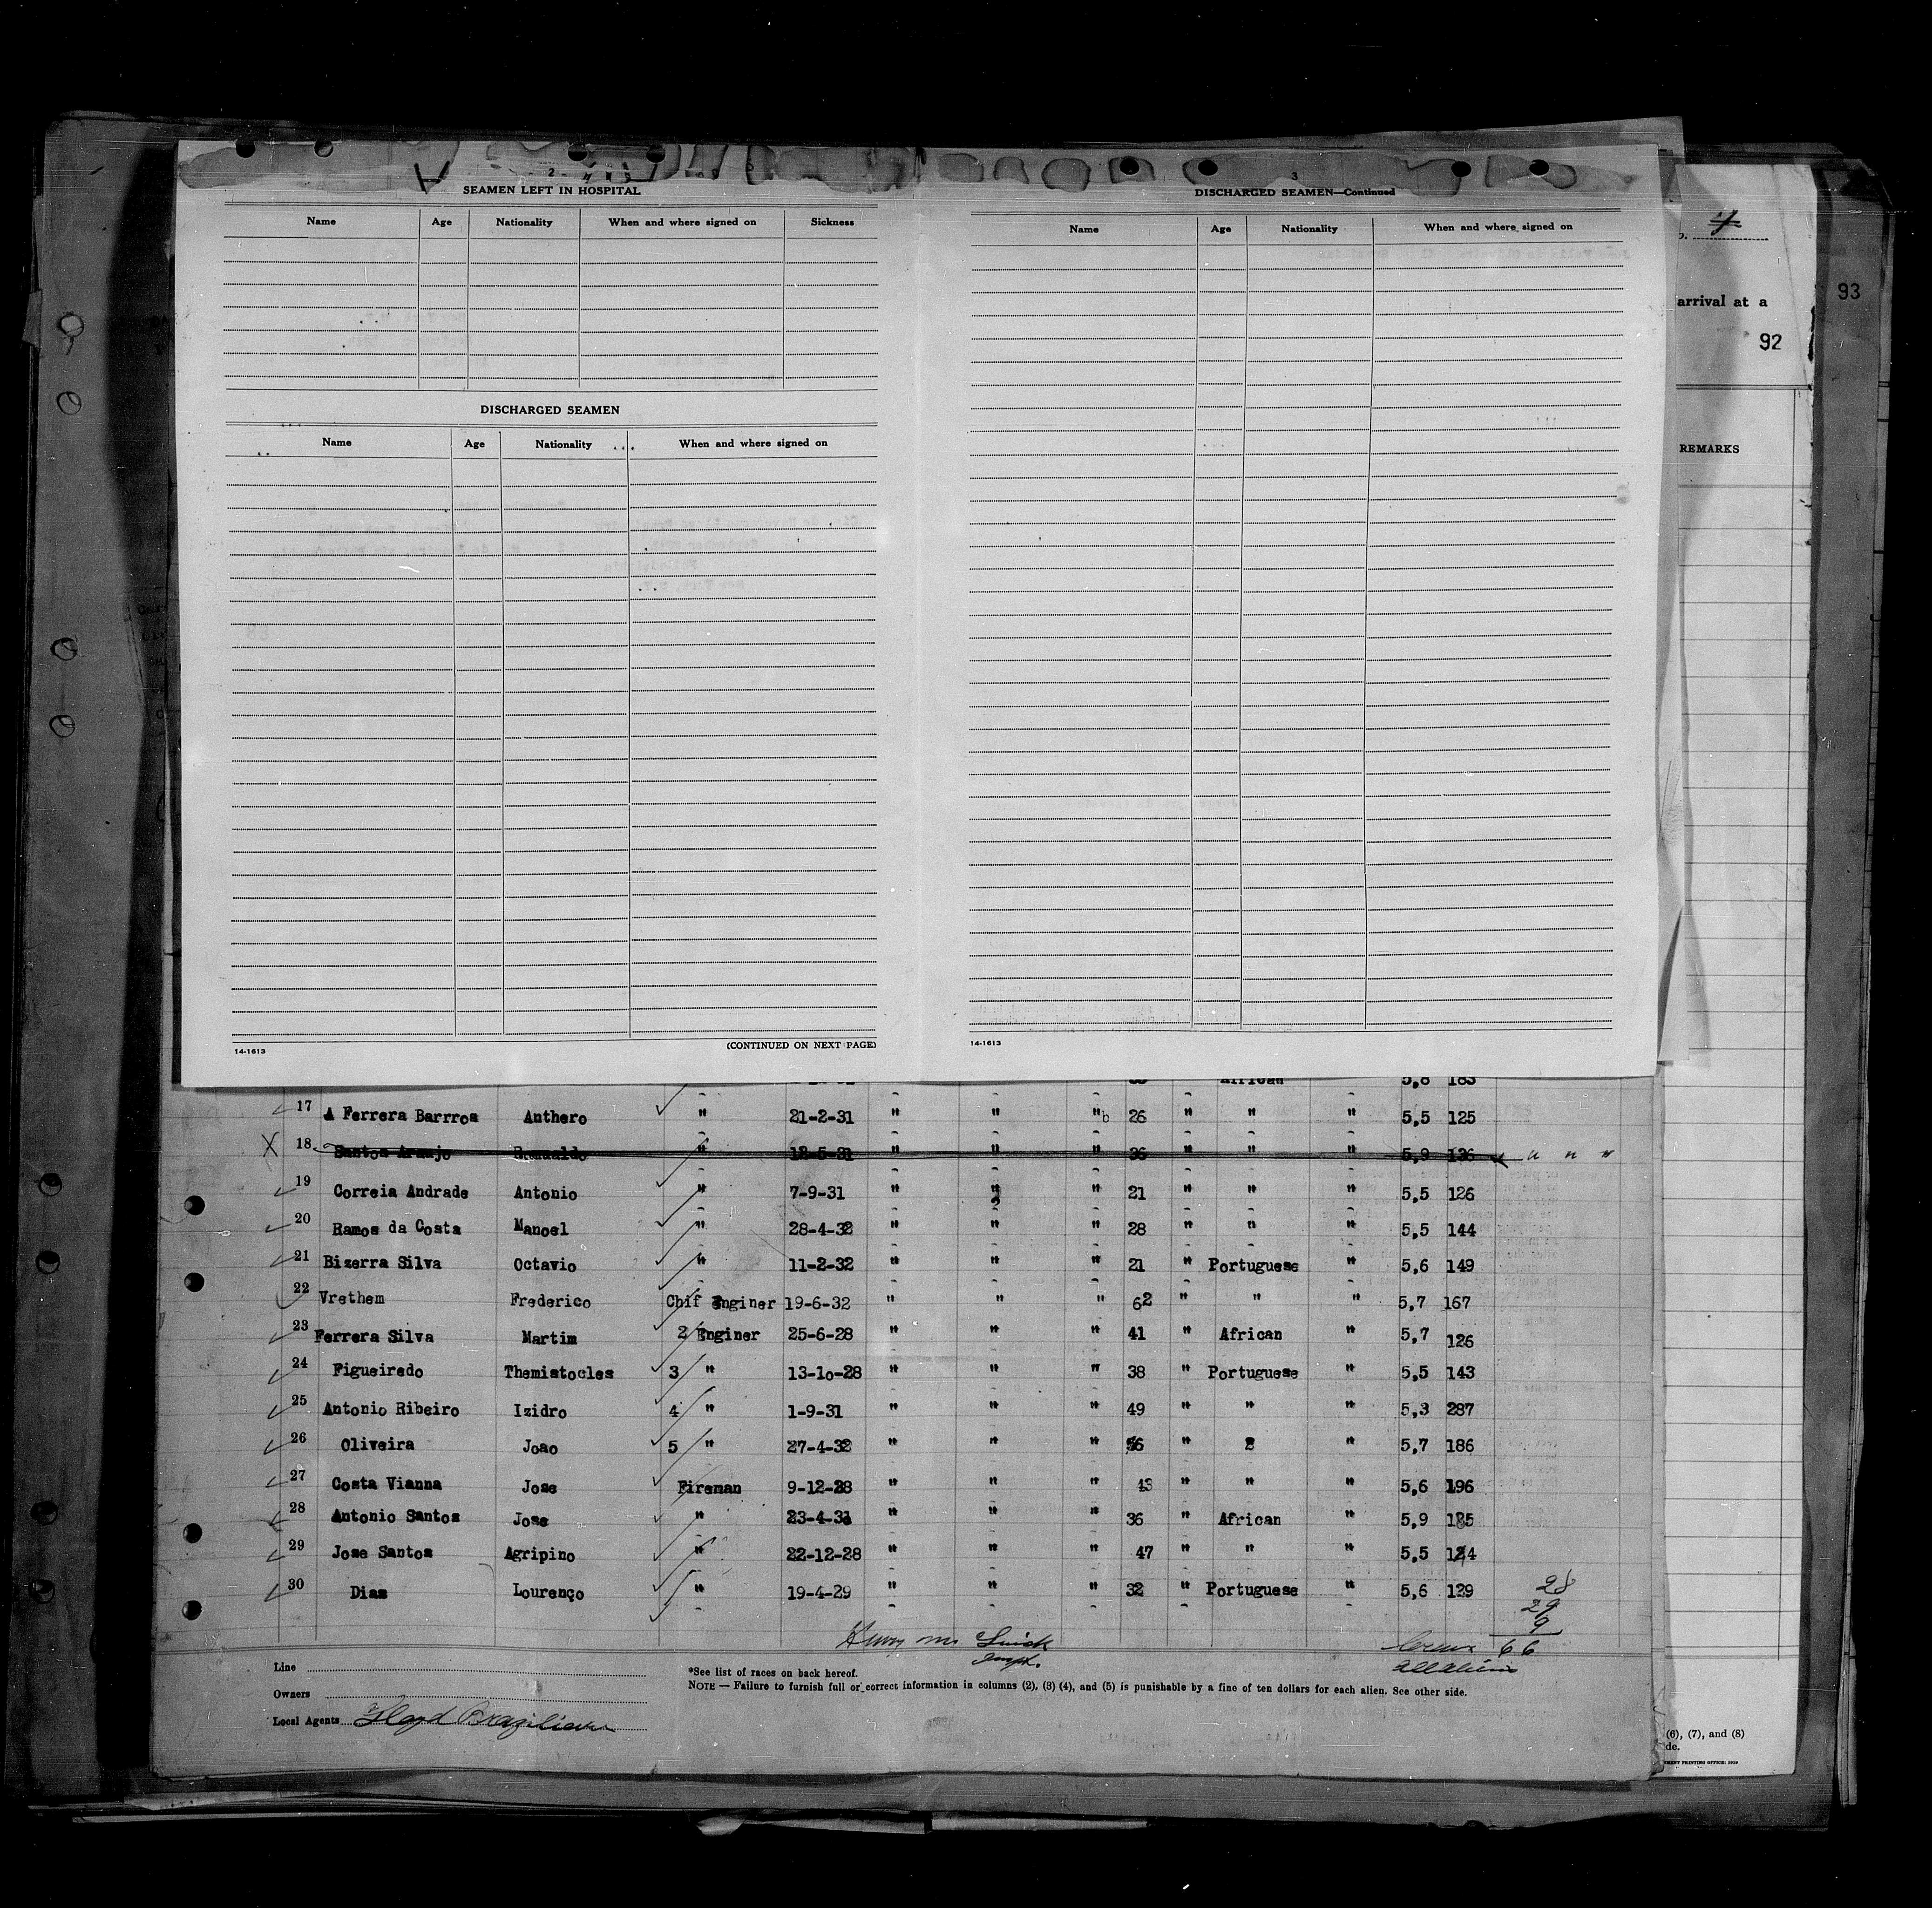 2
SEAMEN LEFT IN HOSPITAL
Name Age Nationality When and where signed on Sickness
DISCHARGED SEAMEN
Name Age Nationality When and where signed on
14-1613 (CONTINUED ON NEXT PAGE)
3
DISCHARGED SEAMEN—Continued
Name Age Nationality When and where signed on
14-1613
arrival at a
93
92
REMARKS
African 5,8 183
17 A Ferrera Barrros Anthero " 21-2-31 " " " b 26 " " " 5,5 125
18 Santos Araujo Romualdo " 12-5-31 " " " 36 " " " 5,9 136 " " "
19 Correia Andrade Antonio " 7-9-31 " " " 21 " " " 5,5 126
20 Ramos da Costa Manoel " 28-4-32 " " " 28 " " " 5,5 144
21 Bizerra Silva Octavio " 11-2-32 " " " 21 " Portuguese " 5,6 149
22 Vrethem Frederico Chif Enginer 19-6-32 " " " 62 " " " 5,7 167
23 Ferrera Silva Martim 2 Enginer 25-6-28 " " " 41 " African " 5,7 126
24 Figueiredo Themistocles 3 " 13-10-28 " " " 38 " Portuguese " 5,5 143
25 Antonio Ribeiro Izidro 4 " 1-9-31 " " " 49 " " " 5,3 287
26 Oliveira Joao 5 " 27-4-32 " " " 56 " " 5,7 186
27 Costa Vianna Jose Fireman 9-12-28 " " " 43 " " " 5,6 196
28 Antonio Santos Jose " 23-4-31 " " " 36 " African " 5,9 185
29 Jose Santos Agripino " 22-12-28 " " " 47 " " " 5,5 124
30 Dias Lourenço " 19-4-29 " " " 32 " Portuguese " 5,6 129
28
29
9
66
Line
Owners
Local Agents Lloyd Brazilian
*See list of races on back hereof.
NOTE — Failure to furnish full or correct information in columns (2), (3) (4), and (5) is punishable by a fine of ten dollars for each alien. See other side.
(6), (7), and (8)
de.